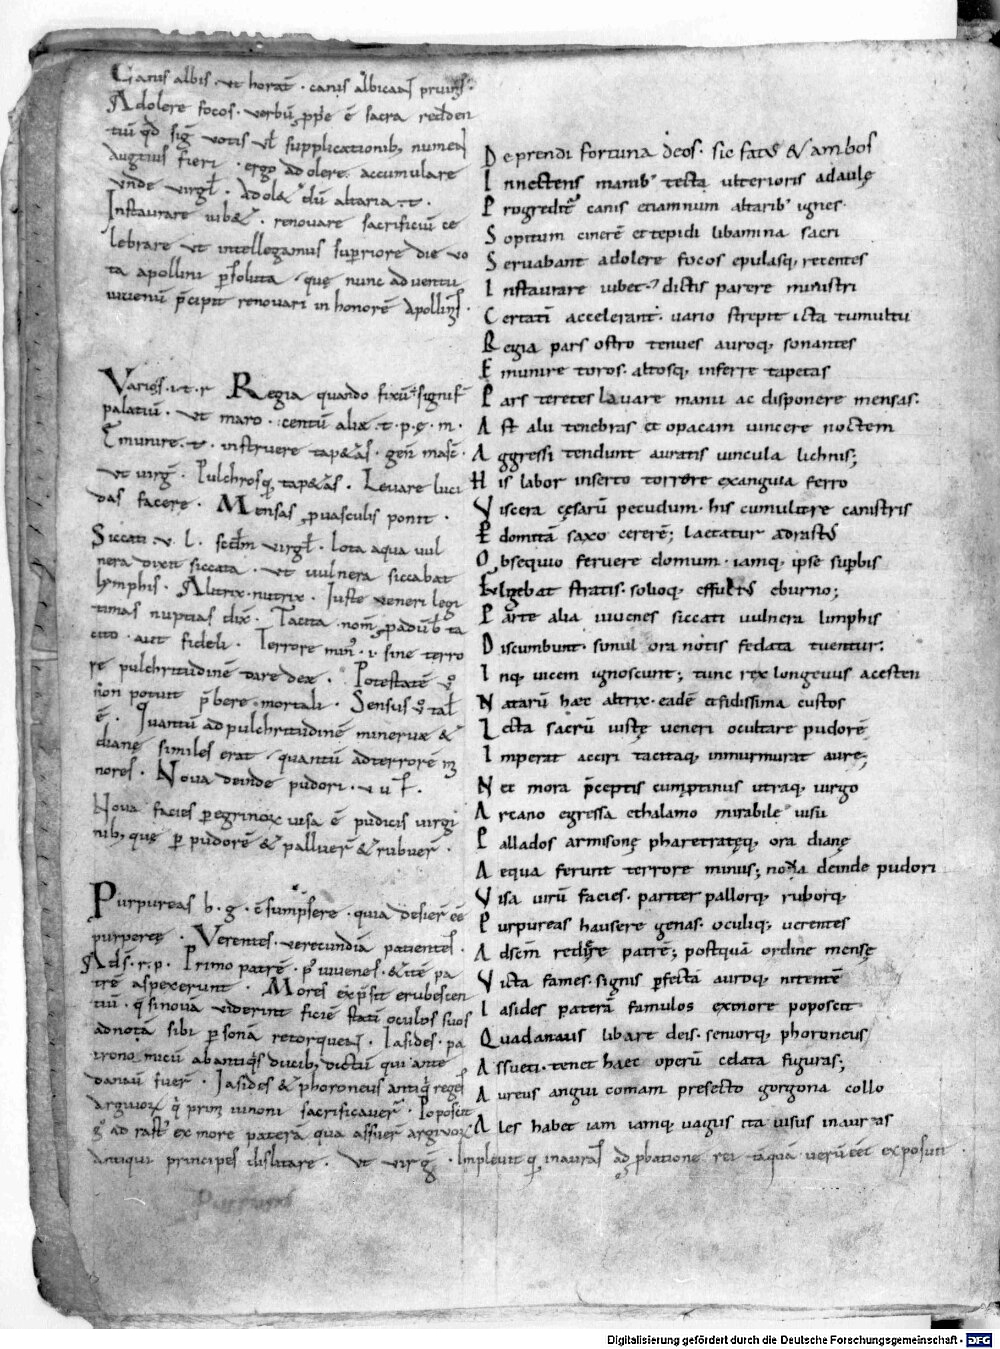 Canis albis · ut horat̄ · canis albicans pruinis ·
Adolere focos · verbū ꝓpe ē sacra redden
tiū qd̄ sig̃ votis ul̄ supplicationib; numen
augtius fieri · ergo adolere accumulare
unde virgł · Adolꝫ dū altaria · t ·
Instaurare iubꝫ · renovare sacrificiū ce
lebrare ut intellegamus superiore die vo
ta apollini ꝑsoluta · quę nunc adventu
iuvenū p̄cipit renovari in honorē Apollinis ·
Varios · s · t · r Regia quando fixū · signif̄
palatiū · ut maro · centū aliæ · t · p · ę · m ·
Emunire · t · instruere tap&as · gen̄ masc̄ ·
ut virg̃ · Pulchrosq; tap&as · Levare luci
das facere · Mensas ꝓ vasculis ponit ·
Siccati · v · l · sc̄dm virgł · lota aqua vul
nera dixit siccata · ut vulnera siccabat
lymphis · Altrix · nutrix · Iuste veneri legi
timas nuptias dix̄ · Tacita · nom̄
cito · aut fideli · Terrore min; · i · sine terro
re pulchritudinē dare deæ · Potestatē
non potuit p̄bere mortali · Sensus ū talis
ē · Quantū ad pulchritudinē minervæ &
dianę similes erat · quantū ad terrorē
nores · Nova deinde pudori · v · u · f ·
Nova facies peregrinoꝝ visa ē pudicis virgi
nib; quę p pudorē & palluer̄ & rubuer̄ ·
Purpureas h · g · c̄sumpsere · quia desier̄ ēē
purpureę · Verentes · verecundiā patientes ·
Ads · r · p · Primo patrē · p; iuvenes · & itē pa
trē aspexerunt · Mores exp̄ssit erubescen
tiū · q̄ si novā viderint faciē statī oculos suos
ad notā sibi personā retorquens · Iasides · pa
tronomicū ab antiq̄s ducib; dictū qui ante
danaū fuer̄ · Iasides & phoroneus antiq̄ reges
argivoꝝ q̄ primi iunoni sacrificaver̄ · Poposcit
g̊ adrast; ex more paterā qua assuer̄ argivoꝝ
antiqui principes dis litare · ut virg̃ · Implevitq; in auras adꝓbatione rei tāquā verū ēēt exposuit
Deprendi fortuna deos · sic fatꝰ & ambos
Innectens manibꝰ tecta ulterioris ad aulę
Progreditꝰ canis etiamnum altaribꝰ ignes ·
Sopitum cinerē et tepidi libamina sacri
Servabant adolere focos epulasq; recentes
Instaurare iubet · dictis parere ministri
Certatī accelerant · vario strepit icta tumultu
Regia pars ostro tenues auroq; sonantes
Emunire toros · altosq; inferre tapetas
Pars teretes lavare manu ac disponere mensas ·
Ast alii tenebras et opacam vincere noctem
Aggressi tendunt auratis vincula lichnis;
His labor inserto torrere exanguia ferro
Viscera cęsarū pecudum · his cumulare canistris
Perdomitā saxo cererē; laetatur adrastꝰ
Obsequio fervere domum · iamq; ipse supbis
Fulgebat stratis · solioq; effultꝰ eburno;
Parte alia iuvenes siccati vulnera limphis
Discumbunt · simul ora notis fędata tuentur:
Inq; vicem ignoscunt; tunc rex longevus acesten
Natarū haec altrix · eadē et fidissima custos
Lecta sacrū iustę veneri occultare pudorē
Imperat acciri tacitaq; inmurmurat aure;
Nec mora p̄ceptis cumptinus utraq; virgo
Arcano egressa e thalamo mirabile visu
Pallados armisonę pharetratęq; ora dianę
Aequa ferunt terrore minus; nova deinde pudori
Visa virū facies · pariter pallorq; ruborq;
Purpureas hausere genas · oculiq; verentes
Ad scm̄ rediere patrē; postquā ordine mensę
Victa fames · signis ꝑfectā auroq; nitentē
Iasides paterā famulos ex more poposcit
Qua danaus libare deis · seniorq; phoroneus
Assueti · tenet haec operū celata figuras;
Aureus anguicomam presecto gorgona collo
Ales habet iam iamq; vagus ita visus in auras